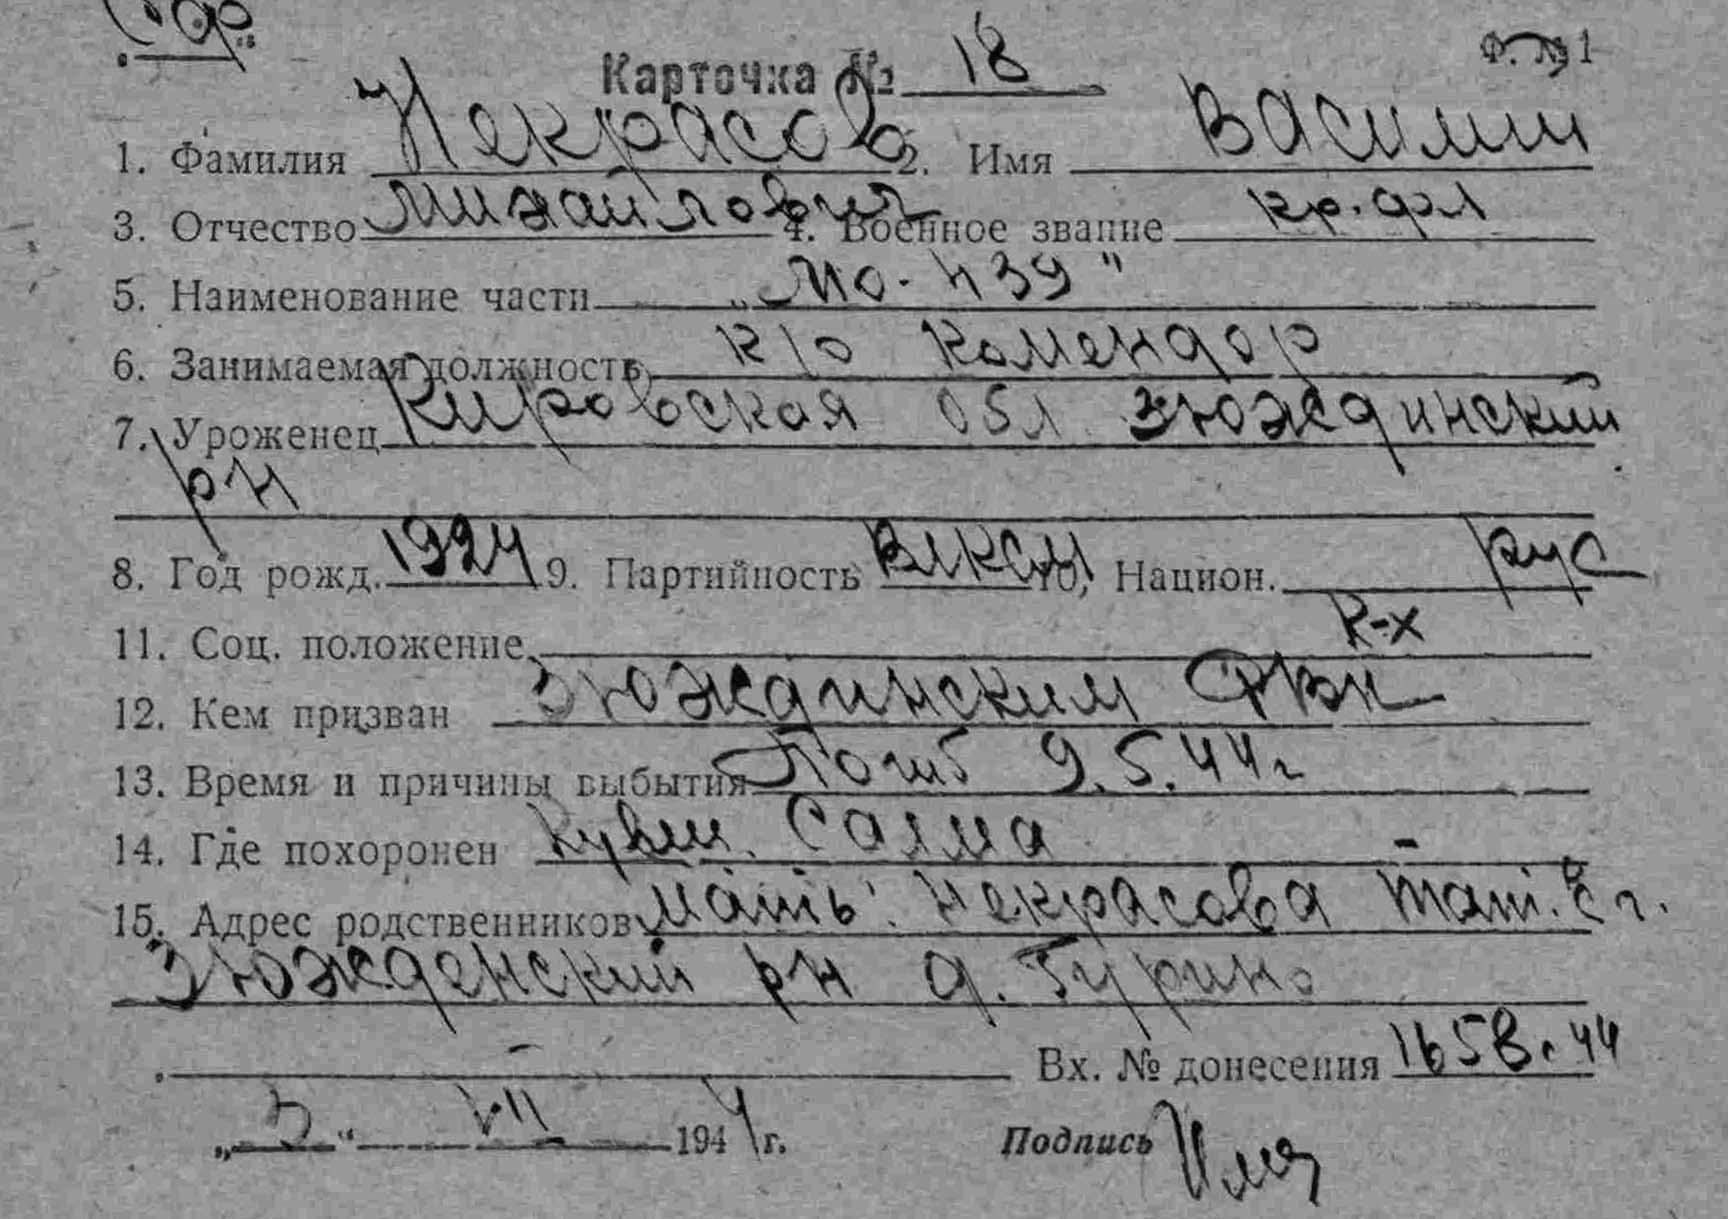 Карточка № 18 Ф. № 1
1. Фамилия Некрасов 2. Имя Василий
3. Отчество Михайлович 4. Военное звание кр. фл
5. Наименование части „МО-439"
6. Занимаемая должность к/о комендор
7. Уроженец Кировская обл Зюждинский
рн
8. Год рожд. 1924 9. Партийность ВЛКСМ 10, Национ. рус
11. Соц. положение к-х
12. Кем призван Зюждинским РВК
13. Время и причины выбытия Погиб 9.5.44 г
14. Где похоронен Кувш. Салма
15. Адрес родственников Мать: Некрасова Тат.
Зюжденский рн д. Гурино
Вх. № донесения 1658.44
„5" VII 1944 г. Подпись